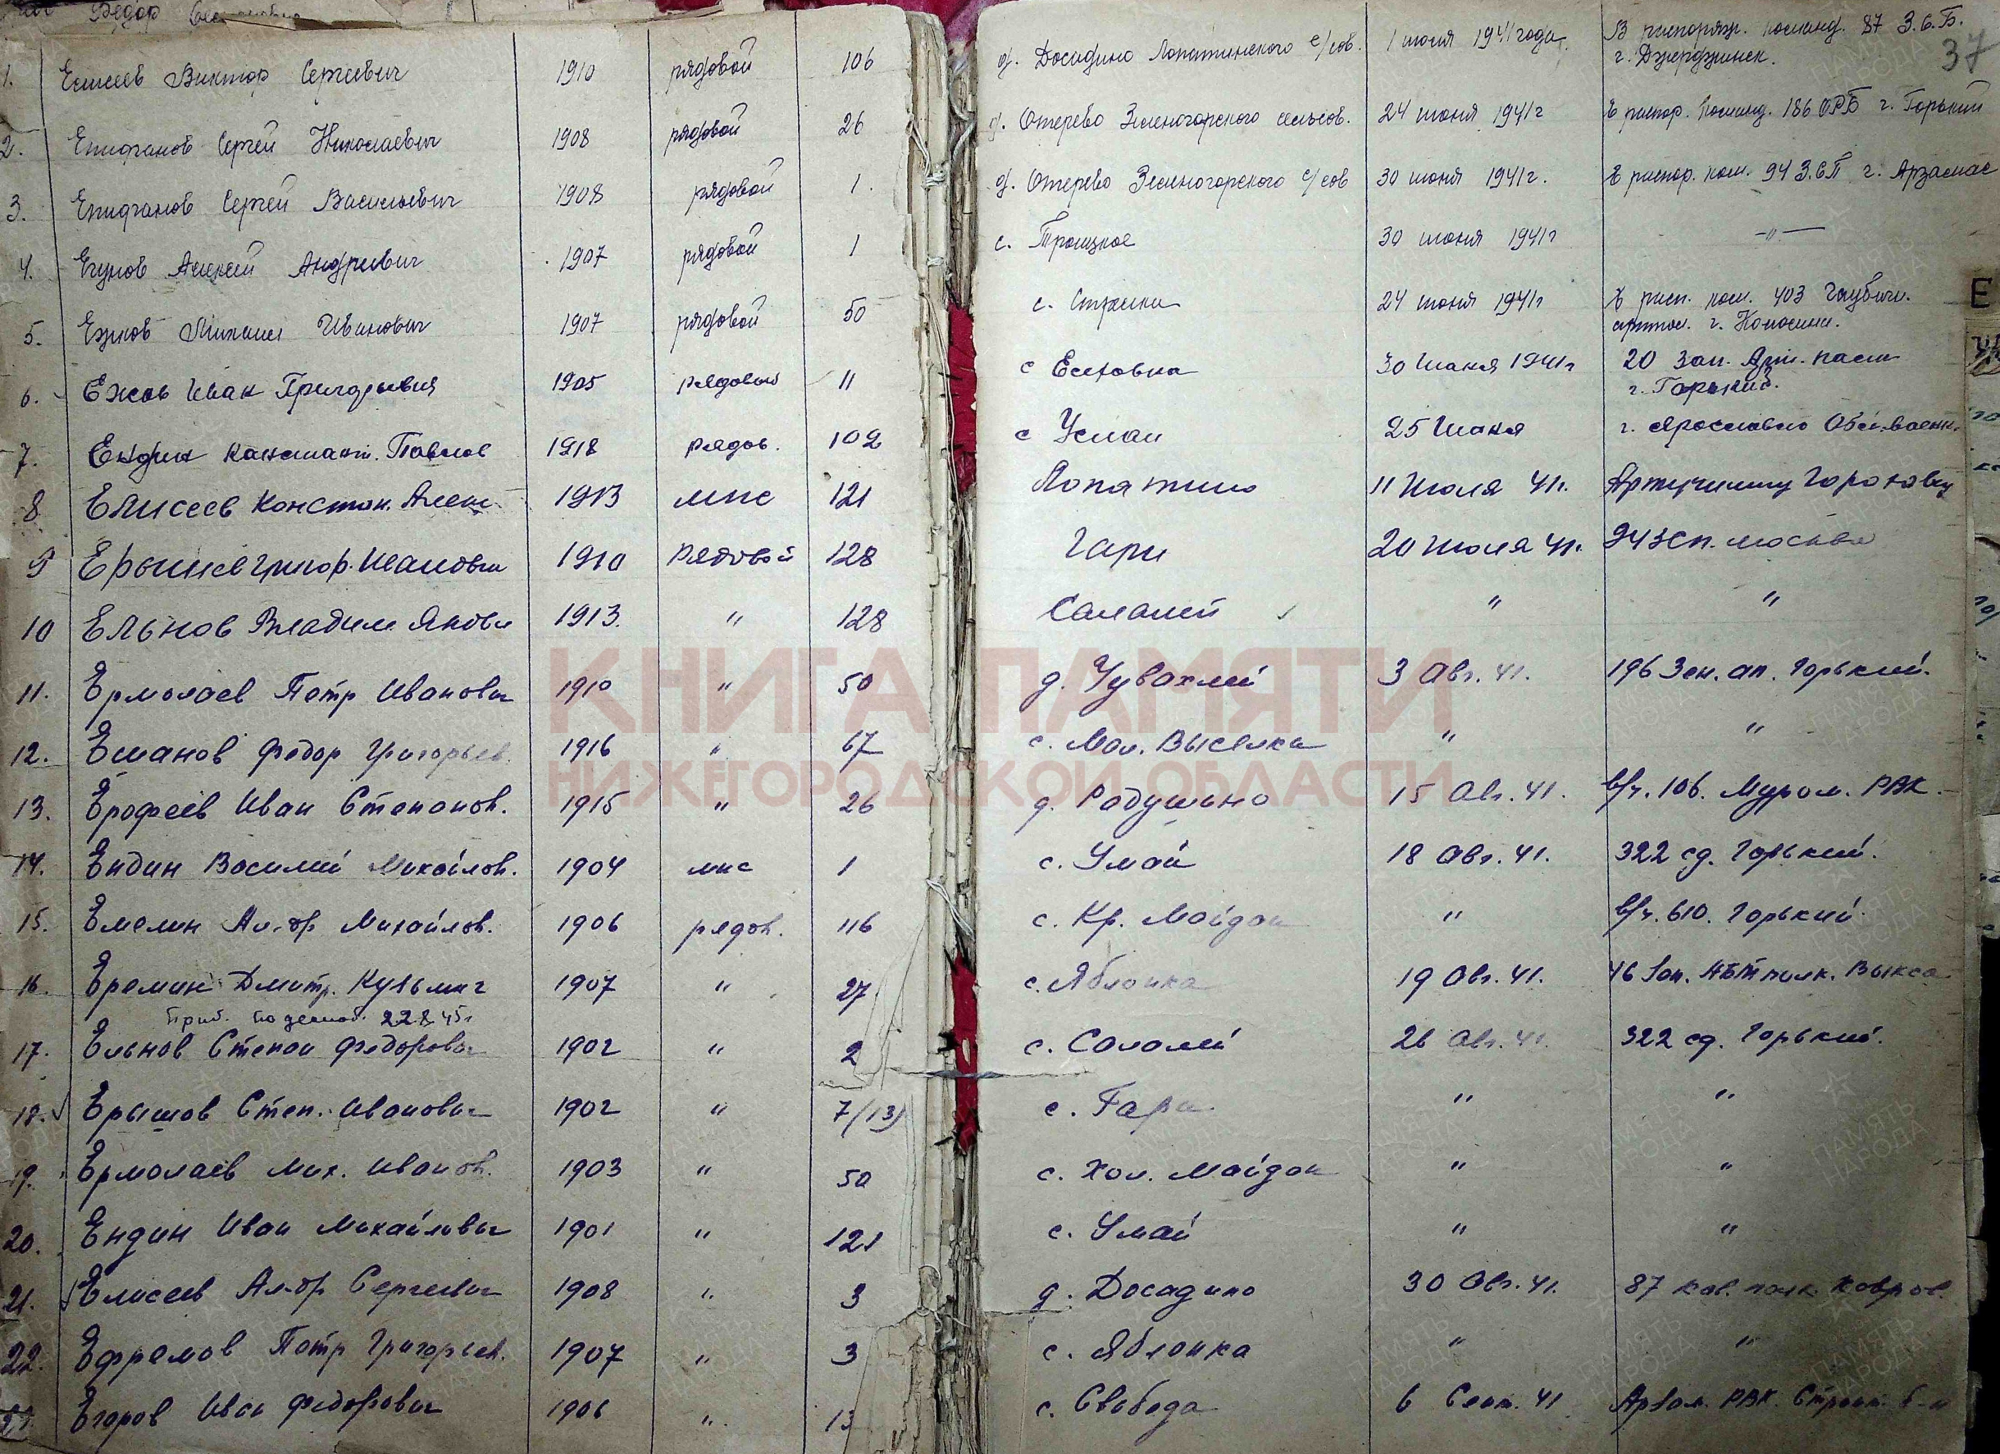 Федор
37
1. Елисеев Виктор Сергеевич 1910 рядовой 106 д. Досадино Лопатинского с/сов. 1 июля 1941 года. В распоряж. команд. 87 З.С.Б.
г. Дзержинск.
2. Епифанов Сергей Николаевич 1908 рядовой 26 д. Отерево Зеленогорского сельсов. 24 июня 1941г В распор. команд. 186 ОРБ г. Горький
3. Епифанов Сергей Васильевич 1908 рядовой 1. д. Отерево Зеленогорского с/сов 30 июня 1941г. В распор. ком. 94 З.С.П г. Арзамас
4. Егунов Алексей Андреевич 1907 рядовой 1 с. Троицкое 30 июня 1941г —〃—
5. Ежков Михаил Иванович 1907 рядовой 50 с. Стрелка 24 июня 1941г В расп. ком. 403 Гаубичн.
артпол. г.
6. Ежов Иван Григорьевич 1905 рядовой 11 с Елховка 30 Июня 1941г 20 Зап. Арт. полк
г. Горький.
7. Ендин Констант. Павлов 1918 рядов. 102 с Умай 25 Июня г. Ярославль
8 Елисеев Констан. Алекс. 1913 мпс 121 Лопатино 11 Июля 41г. Артучилищ Гороховец
9 Ерышев Григор. Иванович 1910 Рядовой 128 Гари 20 Июля 41г. 94 Зсп. Москва
10 Ельнов Владим Яковл 1913. 〃 128 Салалей 〃 〃
11. Ермолаев Петр Иванович 1910 〃 50 д. Чувахлей 3 Авг. 41. 196 Зен. ап. Горький.
12. Еманов Федор Григорьев. 1916 〃 67 с. Мал. Выселка 〃 〃
13. Ерофеев Иван Степанов. 1915 〃 26 д. Радушино 15 Авг. 41. в/ч. 106. Муром. РВК.
14. Ендин Василий Михайлов. 1904 мпс 1 с. Умай 18 Авг. 41. 322 сд. Горький.
15. Емелин Ал-др Михайлов. 1906 рядов. 116 с. Кр. Майдан 〃 в/ч. 610. Горький.
16. Еремин Дмитр. Кузьмич 1907 〃 27 с. Яблонка 19 Авг. 41. 46 Зап. полк. Выкса.
Приб. по демоб. 22.8.45г
17. Ельнов Степан Федорович 1902 〃 2 с. Салалей 26 Авг. 41. 322 сд. Горький.
18. Ерышов Степ. Иванович 1902 〃 7/(13) с. Гари 〃 〃
19. Ермолаев Мих. Иванов. 1903 〃 50 с. Хол. Майдан 〃 〃
20. Ендин Иван Михайлович 1901 〃 121 с. Умай 〃 〃
21. Елисеев Ал-др Сергеевич 1908 〃 3 д. Досадино 30 Авг. 41. 87 кав. полк Ковров.
22. Ефремов Петр Григорьев. 1907 〃 3 с. Яблонка 〃 〃
23. Егоров Иван Федорович 1906 〃 13 с. Свобода 6 Сент. 41 Арзам. РВК. Строит. б-н
Е
КНИГА ПАМЯТИ
НИЖЕГОРОДСКОЙ ОБЛАСТИ
ПАМЯТЬ НАРОДА